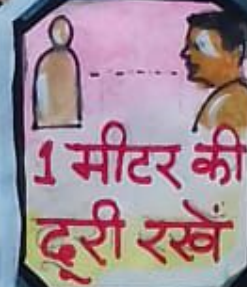 1 मीटर की
दूरी रखें